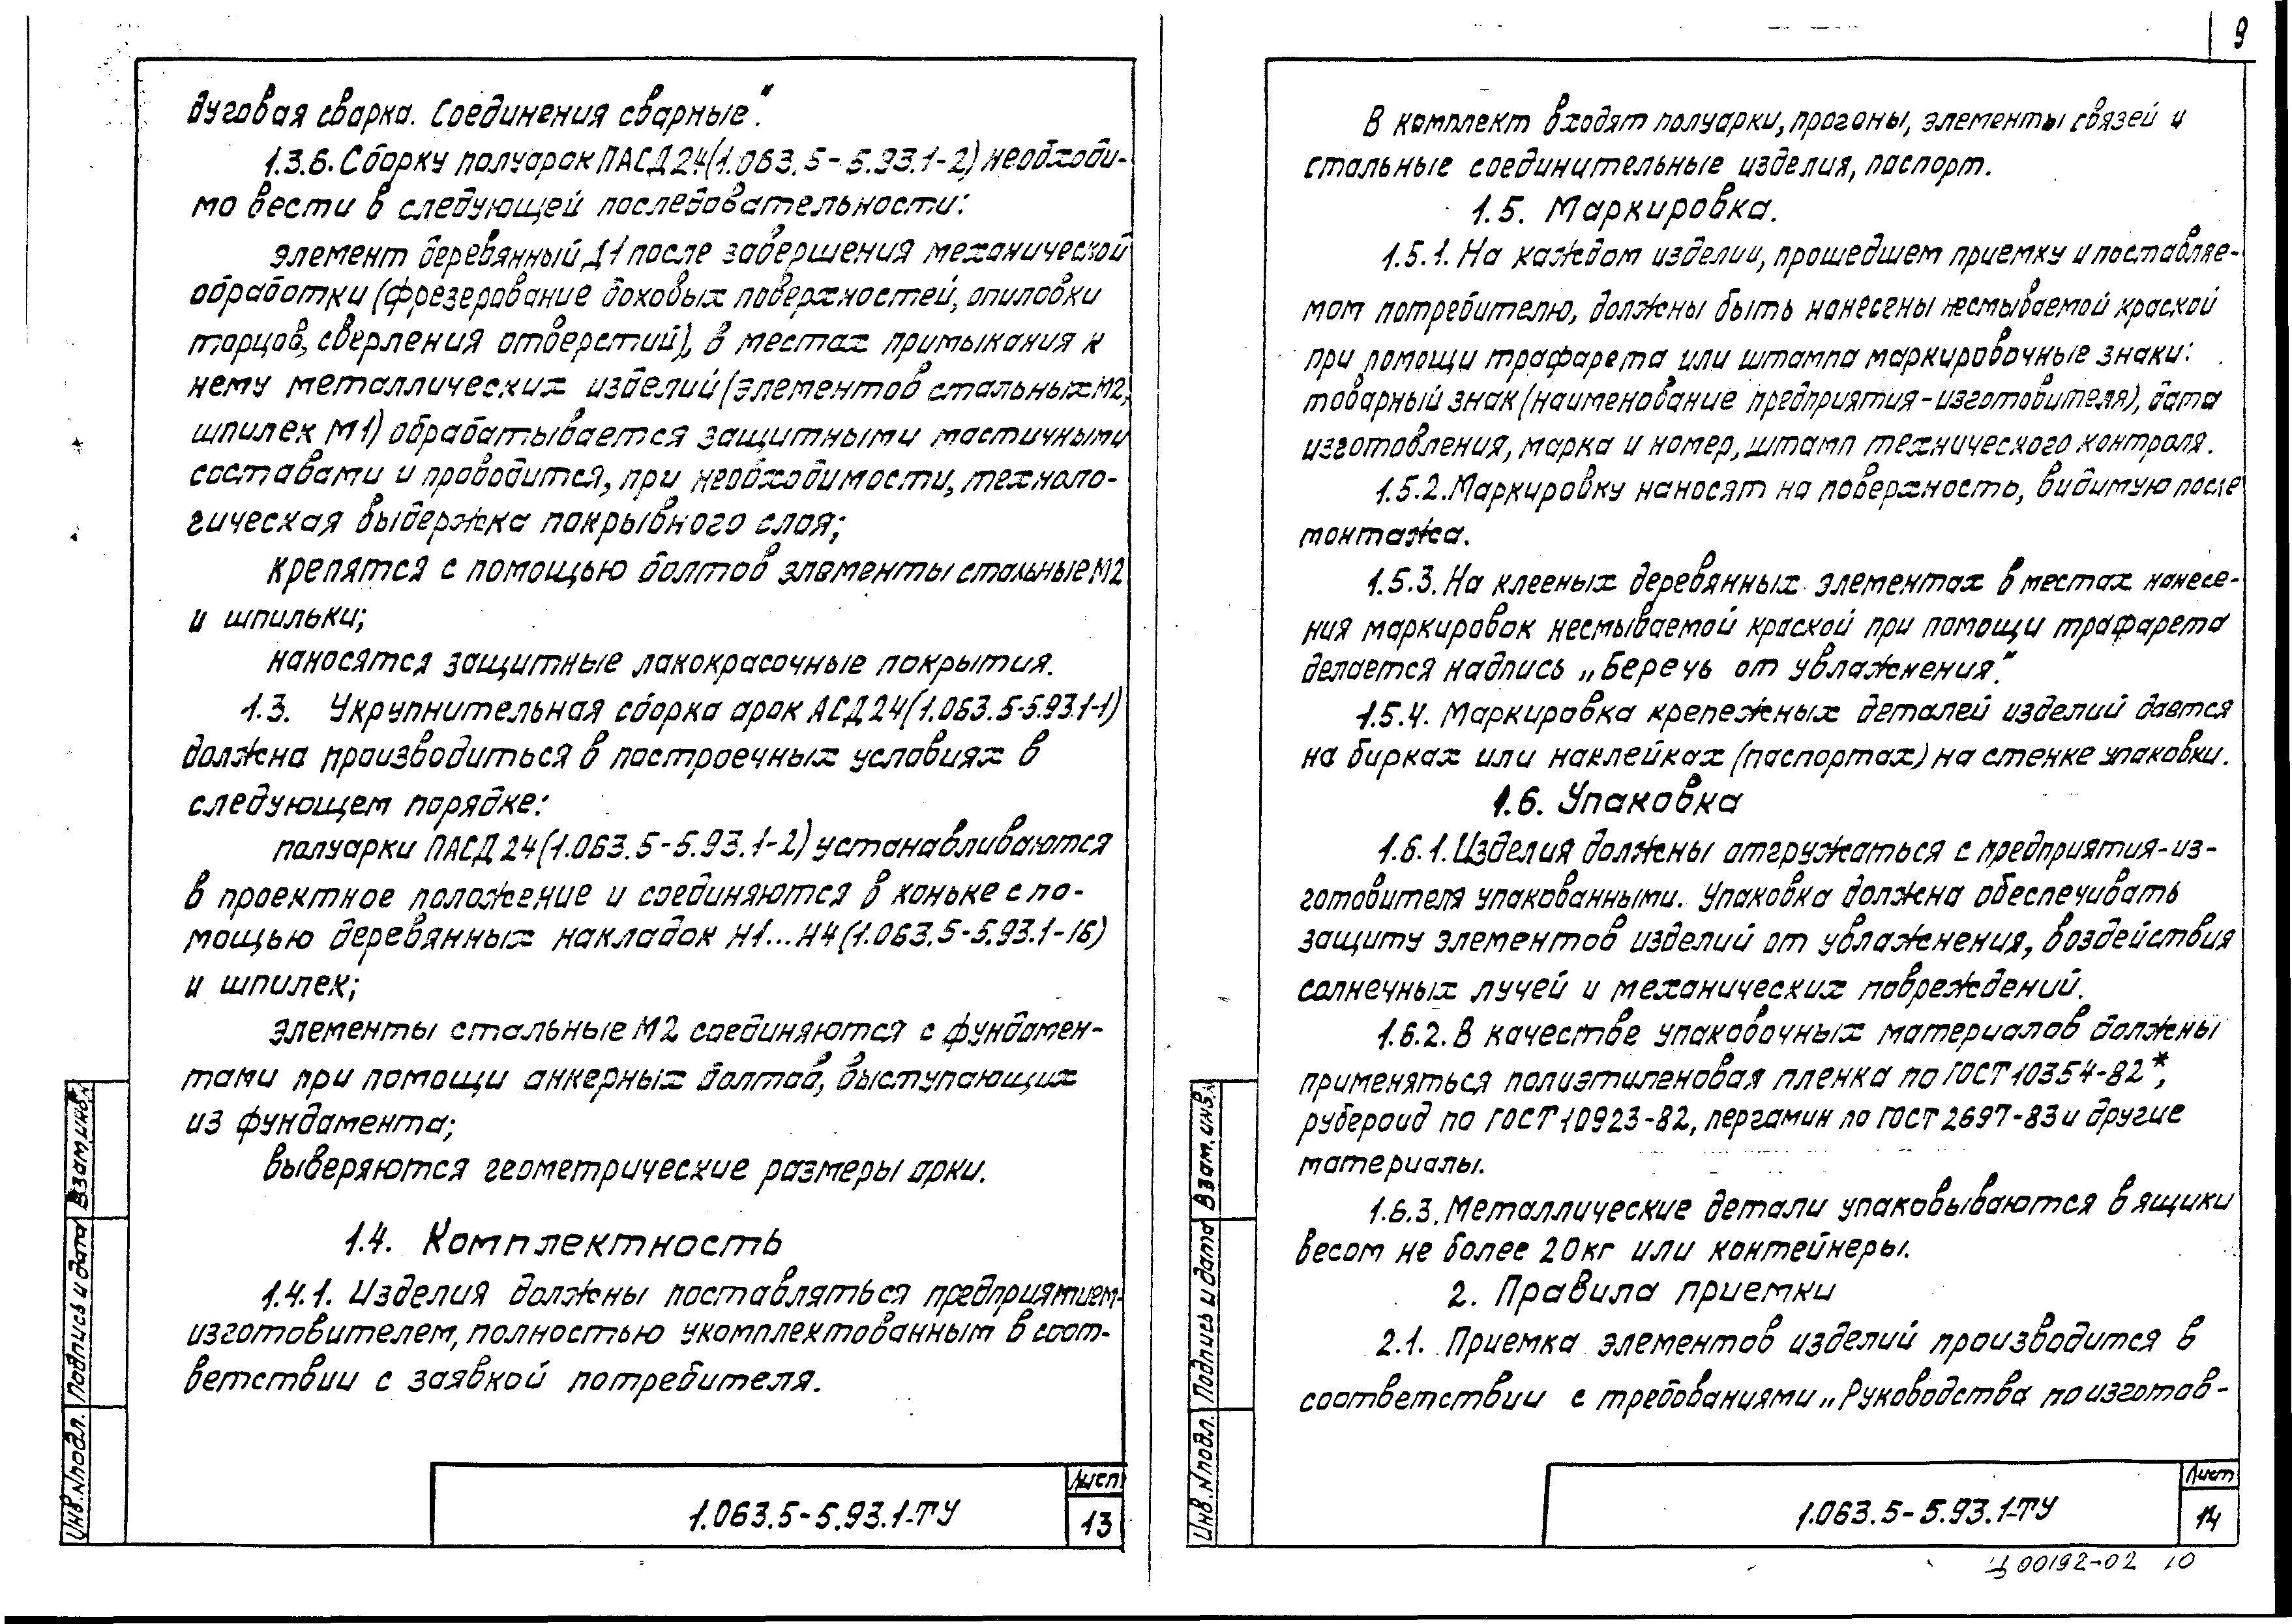 дуговая сварка. Соединения сварные".
1.3.6. Сборку полуарок ПАСД 24 (1.063.5-5.93.1-2) необходи-
мо вести в следующей последовательности:
элемент деревянный Д1 после завершения механической
обработки (фрезерование боковых поверхностей, опиловки
торцов, сверления отверстий), в местах примыкания к
нему металлических изделий (элементов стальных М2,
шпилек М1) обрабатывается защитными мастичными
составами и проводится, при необходимости, техноло-
гическая выдержка покрывного слоя;
крепятся с помощью болтов элементы стальные М2
и шпильки;
наносятся защитные лакокрасочные покрытия.
1.3. Укрупнительная сборка арок АСД 24 (1.063.5-5.93.1-1)
должна производиться в построечных условиях в
следующем порядке:
полуарки ПАСД 24 (1.063.5-5.93.1-2) устанавливаются
в проектное положение и соединяются в коньке с по-
мощью деревянных накладок Н1...Н4 (1.063.5-5.93.1-16)
и шпилек;
элементы стальные М2 соединяются с фундамен-
тами при помощи анкерных болтов, выступающих
из фундамента;
выверяются геометрические размеры арки.
1.4. Комплектность
1.4.1. Изделия должны поставляться предприятием-
изготовителем, полностью укомплектованным в соот-
ветствии с заявкой потребителя.
Инв. № подл. Подпись и дата Взам. инв. №
1.063.5-5.93.1-ТУ
Лист
13
9
В комплект входят полуарки, прогоны, элементы связей и
стальные соединительные изделия, паспорт.
1.5. Маркировка.
1.5.1. На каждом изделии, прошедшем приемку и поставляе-
мом потребителю, должны быть нанесены несмываемой краской
при помощи трафарета или штампа маркировочные знаки:
товарный знак (наименование предприятия-изготовителя), дата
изготовления, марка и номер, штамп технического контроля.
1.5.2. Маркировку наносят на поверхность, видимую после
монтажа.
1.5.3. На клееных деревянных элементах в местах нанесе-
ния маркировок несмываемой краской при помощи трафарета
делается надпись „Беречь от увлажнения".
1.5.4. Маркировка крепежных деталей изделий дается
на бирках или наклейках (паспортах) на стенке упаковки.
1.6. Упаковка
1.6.1. Изделия должны отгружаться с предприятия-из-
готовителя упакованными. Упаковка должна обеспечивать
защиту элементов изделий от увлажнения, воздействия
солнечных лучей и механических повреждений.
1.6.2. В качестве упаковочных материалов должны
применяться полиэтиленовая пленка по ГОСТ 10354-82*,
рубероид по ГОСТ 10923-82, пергамин по ГОСТ 2697-83 и другие
материалы.
1.6.3. Металлические детали упаковываются в ящики
весом не более 20 кг или контейнеры.
2. Правила приемки
2.1. Приемка элементов изделий производится в
соответствии с требованиями „Руководства по изготов-
Инв. № подл. Подпись и дата Взам. инв. №
1.063.5-5.93.1-ТУ
Лист
14
Ц00192-02 10